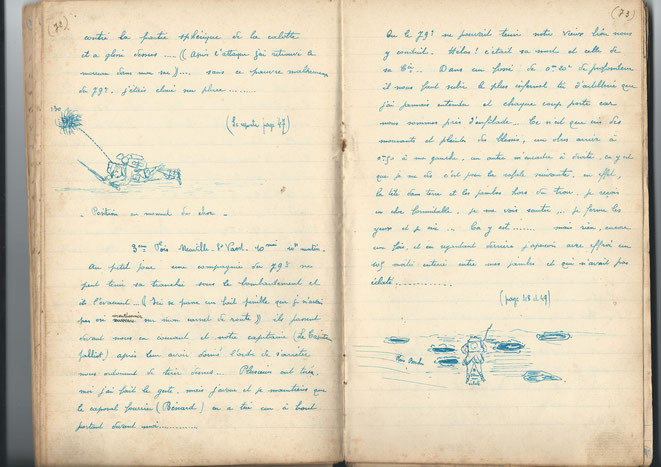 (72)
contre la partie sphérique de la calotte
il a glissé dessus ..... (( Après l'attaque j'ai retrouvé le
morceau dans mon sac )) .... sans ce pauvre malheureux
du 79e, j'étais cloué sur place .........
150
(Se reporter page 47)
- Position au moment du choc -
3eme Fois Neuville-St Vaast. 10 mai 10h matin.
Au petit jour une compagnie du 79e ne
peut tenir sa tranchée sous le bombardement et
de l'évacuer. (( Ici se passe un fait pénible que je n'avais
pas osé sur mon carnet de route )) ils passent
devant nous en courant et notre capitaine (Le Capitaine
) après leur avoir donné l'ordre de s'arrêter
nous ordonne de tirer dessus. Plusieurs ont tiré,
moi j'ai fait le geste, mais j'avoue et je maintiens que
le caporal fourrier (Bénard) en a tué un à bout
portant devant moi.............
(73)
Où le 79e ne pouvait tenir notre vieux lion nous
y conduit. Hélas ! c'était sa mort et celle de
sa Cie ... Dans un fossé de 0m20 de profondeur
il nous faut subir le plus infernal tir d'artillerie que
j'ai jamais entendu et chaque coup porte car
nous sommes pris d'enfilade... Ce n'est que cris des
mourants et plaintes des blessés, un obus arrive à
0m50 à ma gauche, un autre m'encadre à droite, ça y est
que je me dis c'est pour la rafale suivante, en effet,
la tête dans terre et les jambes hors du trou, je reçois
un choc formidable, je me vois sauter ... je ferme les
yeux et je crie ... Ça y est ........ mais rien, encore
une fois, et en regardant derrière j'aperçois avec effroi un
105 moitié enterré entre mes jambes et qui n'avait pas
éclaté ..............
(page 48 et 49)